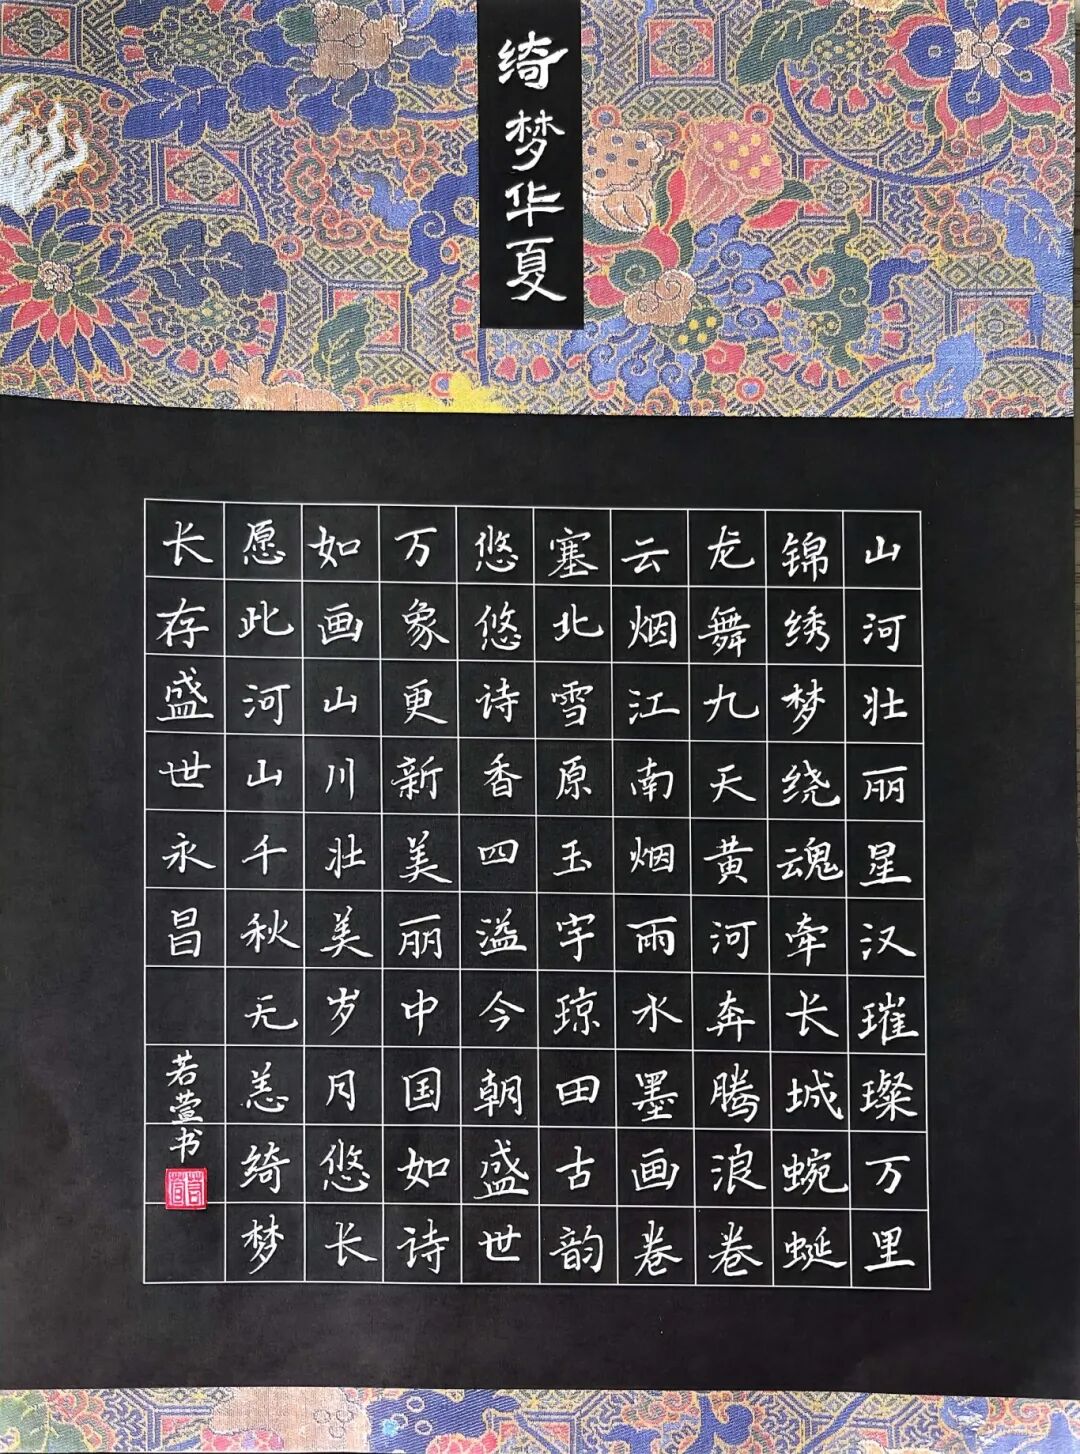 绮梦华夏
山河壮丽星汉璀璨万里
锦绣梦绕魂牵长城蜿蜒
龙舞九天黄河奔腾浪卷
云烟江南烟雨水墨画卷
塞北雪原玉宇琼田古韵
悠悠诗香四溢今朝盛世
万象更新美丽中国如诗
如画山川壮美岁月悠长
愿此河山千秋无恙绮梦
长存盛世永昌
若萱书